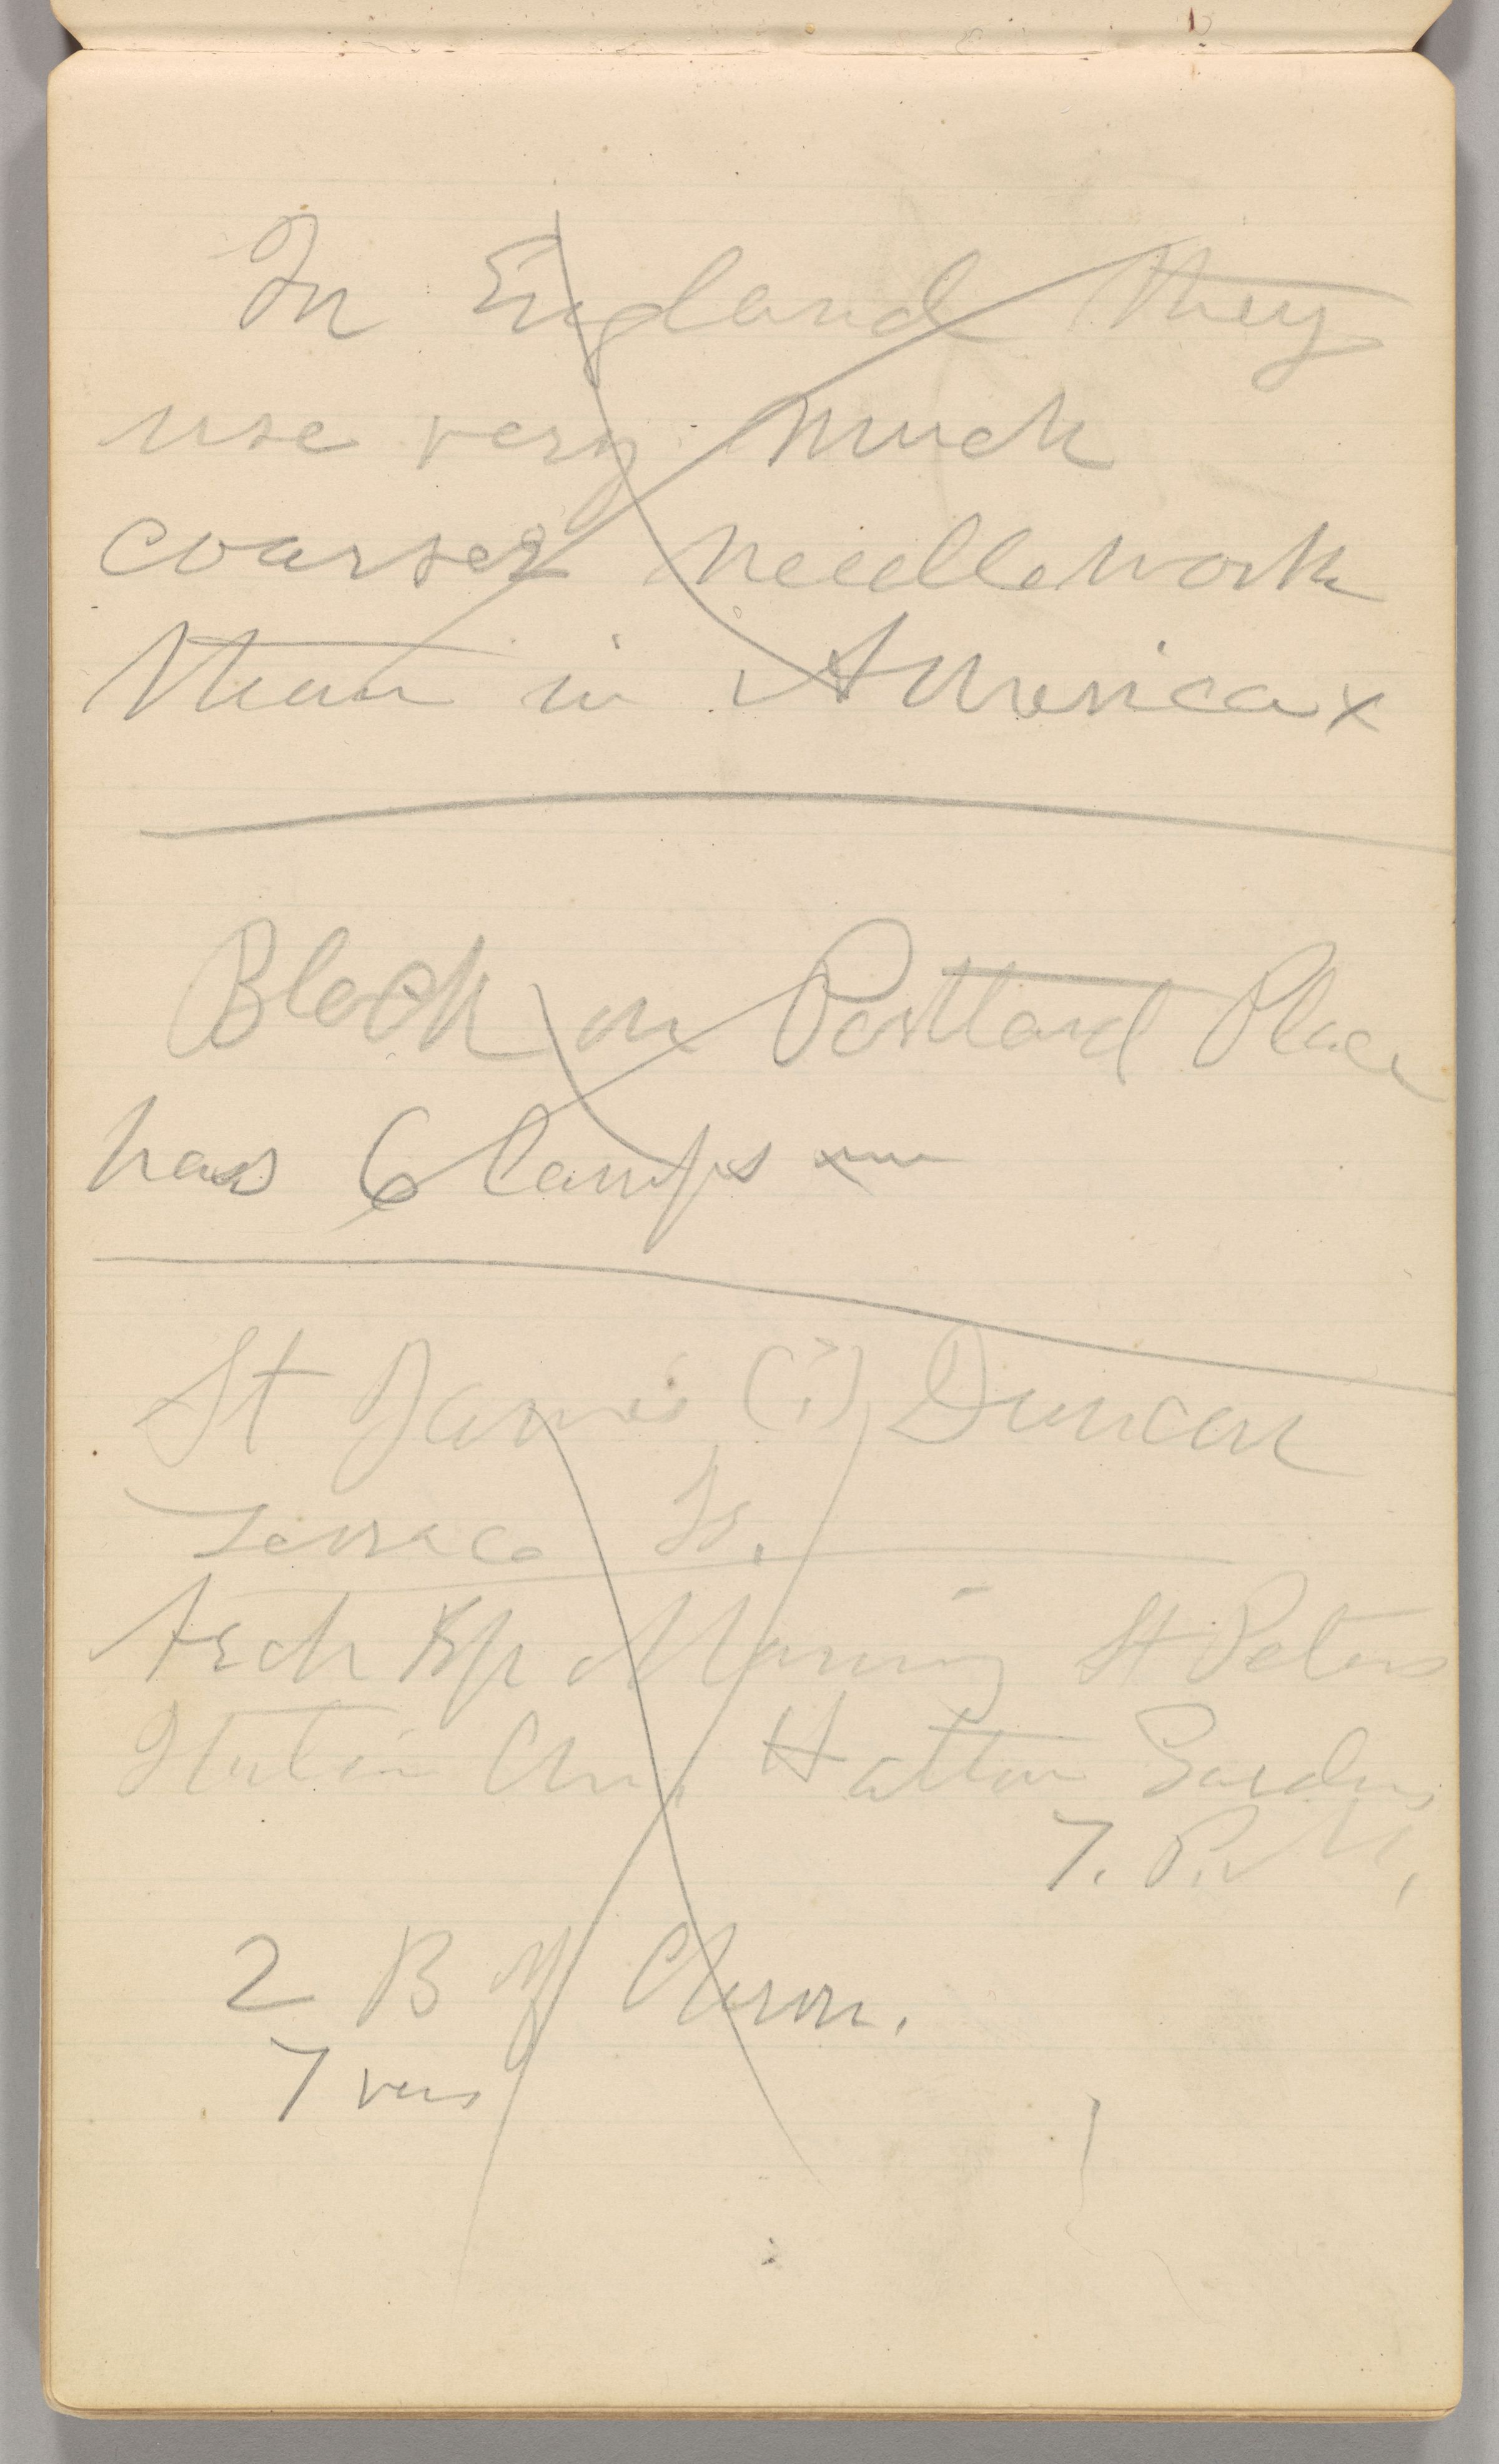 In England they
use very much
coarser needlework
than in America x
Block on Portland Place
has 6 lamps
St James (?) Duncan
Terrace Is.
Arch Bp Manning St Peters
Italian Ch. Hatton Garden,
7. P.M.
2 B of Chron.
7 vers